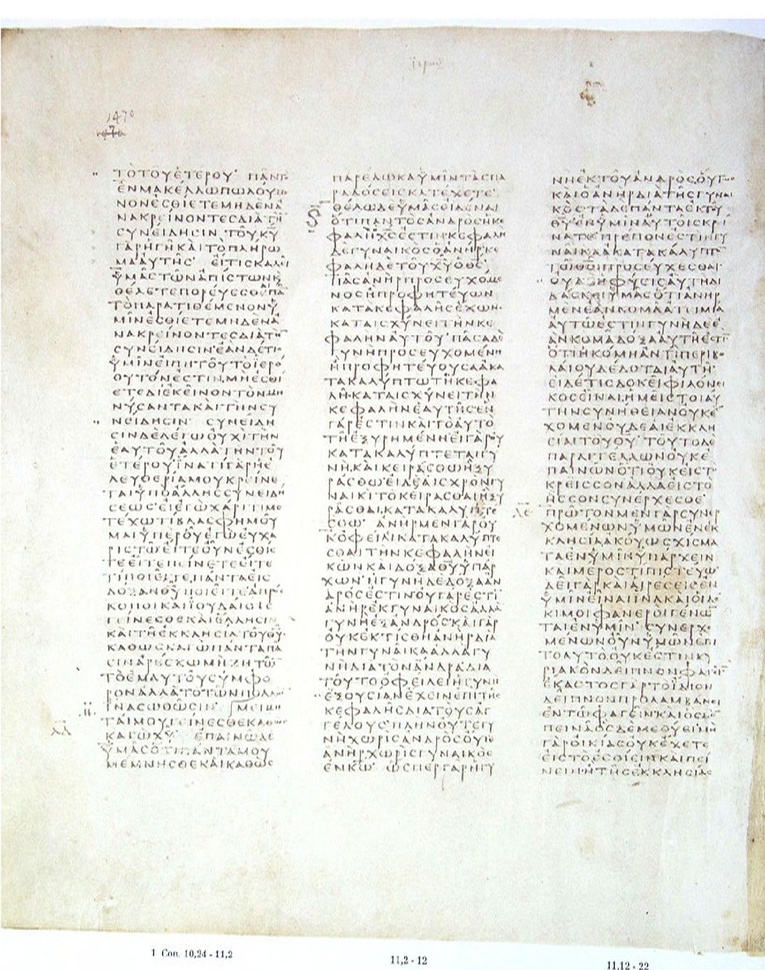 1470
ΤΟΤΟΥΕΤΕΡΟΥ ΠΑΝΤ
ΕΝΜΑΚΕΛΛΩΠΩΛΟΥΜΕ
ΝΟΝΕΣΘΙΕΤΕΜΗΔΕΝΑ
ΝΑΚΡΕΙΝΟΝΤΕΣΔΙΑΤΗ
ΣΥΝΕΙΔΗΣΙΝ ΤΟΥΚΥ
ΓΑΡΗΓΗΚΑΙΤΟΠΛΗΡΩ
ΜΑΑΥΤΗΣ ΕΙΤΙΣΚΑΛΕΙ
ΥΜΑΣΤΩΝΑΠΙΣΤΩΝΚ
ΘΕΛΕΤΕΠΟΡΕΥΕΣΘΕΠΑ
ΤΟΠΑΡΑΤΙΘΕΜΕΝΟΝΥ
ΜΙΝΕΣΘΙΕΤΕΜΗΔΕΝΑ
ΝΑΚΡΕΙΝΟΝΤΕΣΔΙΑΤΗ
ΣΥΝΕΙΔΗΣΙΝΕΑΝΔΕΤΙΣ
ΥΜΙΝΕΙΠΗΤΟΥΤΟΙΕΡΟ
ΘΥΤΟΝΕΣΤΙΝΜΗΕΣΘΙ
ΕΤΕΔΙΕΚΕΙΝΟΝΤΟΝΜΗ
ΝΥΣΑΝΤΑΚΑΙΤΗΝΣΥ
ΝΕΙΔΗΣΙΝ ΣΥΝΕΙΔΗ
ΣΙΝΔΕΛΕΓΩΟΥΧΙΤΗΝ
ΕΑΥΤΟΥΑΛΛΑΤΗΝΤΟΥ
ΕΤΕΡΟΥΙΝΑΤΙΓΑΡΗΕ
ΛΕΥΘΕΡΙΑΜΟΥΚΡΕΙΝΕ
ΤΑΙΥΠΟΑΛΛΗΣΣΥΝΕΙΔΗ
ΣΕΩΣΕΙΕΓΩΧΑΡΙΤΙΜΕ
ΤΕΧΩΤΙΒΛΑΣΦΗΜΟΥ
ΜΑΙΥΠΕΡΟΥΕΓΩΕΥΧΑ
ΡΙΣΤΩΕΙΤΕΟΥΝΕΣΘΙΕ
ΤΕΕΙΤΕΠΕΙΝΕΤΕΕΙΤΕ
ΤΙΠΟΙΕΙΤΕΠΑΝΤΑΕΙΣ
ΔΟΞΑΝΘΥΠΟΙΕΙΤΕΑΠΡΟΣ
ΚΟΠΟΙΚΑΙΙΟΥΔΑΙΟΙΣ
ΓΕΙΝΕΣΘΕΚΑΙΕΛΛΗΣΙΝ
ΚΑΙΤΗΕΚΚΛΗΣΙΑΤΟΥΘΥ
ΚΑΘΩΣΚΑΓΩΠΑΝΤΑΠΑ
ΣΙΝΑΡΕΣΚΩΜΗΖΗΤΩ
ΤΟΕΜΑΥΤΟΥΣΥΜΦΟ
ΡΟΝΑΛΛΑΤΟΤΩΝΠΟΛΛΩ
ΙΝΑΣΩΘΩΣΙΝ ΜΕΙΜΗ
ΤΑΙΜΟΥΓΕΙΝΕΣΘΕΚΑΘΩΣ
ΚΑΓΩΧΥ ΕΠΑΙΝΩΔΕ
ΥΜΑΣΟΤΙΠΑΝΤΑΜΟΥ
ΜΕΜΝΗΣΘΕΚΑΙΚΑΘΩΣ
ΠΑΡΕΔΩΚΑΥΜΙΝΤΑΣΠΑ
ΡΑΔΟΣΕΙΣΚΑΤΕΧΕΤΕ
ΘΕΛΩΔΕΥΜΑΣΕΙΔΕΝΑΙ
ΟΤΙΠΑΝΤΟΣΑΝΔΡΟΣΗΚΕ
ΦΑΛΗΟΧΣΕΣΤΙΝΚΕΦΑΛΗ
ΔΕΓΥΝΑΙΚΟΣΟΑΝΗΡΚΕ
ΦΑΛΗΔΕΤΟΥΧΥΟΘΣ
ΠΑΣΑΝΗΡΠΡΟΣΕΥΧΟΜΕ
ΝΟΣΗΠΡΟΦΗΤΕΥΩΝ
ΚΑΤΑΚΕΦΑΛΗΣΕΧΩΝ
ΚΑΤΑΙΣΧΥΝΕΙΤΗΝΚΕ
ΦΑΛΗΝΑΥΤΟΥ ΠΑΣΑΔΕ
ΓΥΝΗΠΡΟΣΕΥΧΟΜΕΝΗ
ΗΠΡΟΦΗΤΕΥΟΥΣΑΑΚΑ
ΤΑΚΑΛΥΠΤΩΤΗΚΕΦΑ
ΛΗΚΑΤΑΙΣΧΥΝΕΙΤΗΝ
ΚΕΦΑΛΗΝΕΑΥΤΗΣΕΝ
ΓΑΡΕΣΤΙΝΚΑΙΤΟΑΥΤΟ
ΤΗΕΞΥΡΗΜΕΝΗΕΙΓΑΡΟΥ
ΚΑΤΑΚΑΛΥΠΤΕΤΑΙΓΥ
ΝΗΚΑΙΚΕΙΡΑΣΘΩΗΞΥ
ΡΑΣΘΩΕΙΔΕΑΙΣΧΡΟΝΓΥ
ΝΑΙΚΙΤΟΚΕΙΡΑΣΘΑΙΗΞΥ
ΡΑΣΘΑΙΚΑΤΑΚΑΛΥΠΤΕ
ΣΘΩ ΑΝΗΡΜΕΝΓΑΡΟΥ
ΚΟΦΕΙΛΕΙΚΑΤΑΚΑΛΥΠΤΕ
ΣΘΑΙΤΗΝΚΕΦΑΛΗΝΕΙ
ΚΩΝΚΑΙΔΟΞΑΘΥΥΠΑΡ
ΧΩΝ ΗΓΥΝΗΔΕΔΟΞΑΑΝ
ΔΡΟΣΕΣΤΙΝΟΥΓΑΡΕΣΤΙ
ΑΝΗΡΕΚΓΥΝΑΙΚΟΣΑΛΛΑ
ΓΥΝΗΕΞΑΝΔΡΟΣΚΑΙΓΑΡ
ΟΥΚΕΚΤΙΣΘΗΑΝΗΡΔΙΑ
ΤΗΝΓΥΝΑΙΚΑΑΛΛΑΓΥ
ΝΗΔΙΑΤΟΝΑΝΔΡΑΔΙΑ
ΤΟΥΤΟΟΦΕΙΛΕΙΗΓΥΝΗ
ΕΞΟΥΣΙΑΝΕΧΕΙΝΕΠΙΤΗΣ
ΚΕΦΑΛΗΣΔΙΑΤΟΥΣΑΓ
ΓΕΛΟΥΣΠΛΗΝΟΥΤΕΓΥ
ΝΗΧΩΡΙΣΑΝΔΡΟΣΟΥΤΕ
ΑΝΗΡΧΩΡΙΣΓΥΝΑΙΚΟΣ
ΕΝΚΩ ΩΣΠΕΡΓΑΡΗΓΥ
ΝΗΕΚΤΟΥΑΝΔΡΟΣΟΥΤΩΣ
ΚΑΙΟΑΝΗΡΔΙΑΤΗΣΓΥΝΑΙ
ΚΟΣΤΑΔΕΠΑΝΤΑΕΚΤΟΥ
ΘΥΕΝΥΜΙΝΑΥΤΟΙΣΚΡΕΙ
ΝΑΤΕΠΡΕΠΟΝΕΣΤΙΝΓΥ
ΝΑΙΚΑΑΚΑΤΑΚΑΛΥΠΤΟ
ΤΩΘΩΠΡΟΣΕΥΧΕΣΘΑΙ
ΟΥΔΕΗΦΥΣΙΣΑΥΤΗΔΙ
ΔΑΣΚΕΙΥΜΑΣΟΤΙΑΝΗΡ
ΜΕΝΕΑΝΚΟΜΑΑΤΙΜΙΑ
ΑΥΤΩΕΣΤΙΝΓΥΝΗΔΕΕ
ΑΝΚΟΜΑΔΟΞΑΑΥΤΗΕΣΤΙ
ΟΤΙΗΚΟΜΗΑΝΤΙΠΕΡΙΒΟ
ΛΑΙΟΥΔΕΔΟΤΑΙΑΥΤΗ
ΕΙΔΕΤΙΣΔΟΚΕΙΦΙΛΟΝΕΙ
ΚΟΣΕΙΝΑΙΗΜΕΙΣΤΟΙΑΥ
ΤΗΝΣΥΝΗΘΕΙΑΝΟΥΚΕ
ΧΟΜΕΝΟΥΔΕΑΙΕΚΚΛΗ
ΣΙΑΙΤΟΥΘΥ ΤΟΥΤΟΔΕ
ΠΑΡΑΓΓΕΛΛΩΝΟΥΚΕ
ΠΑΙΝΩΝΟΤΙΟΥΚΕΙΣΤΟ
ΚΡΕΙΣΣΟΝΑΛΛΑΕΙΣΤΟ
ΗΣΣΟΝΣΥΝΕΡΧΕΣΘΕ
ΠΡΩΤΟΝΜΕΝΓΑΡΣΥΝΕΡ
ΧΟΜΕΝΩΝΥΜΩΝΕΝΕΚ
ΚΛΗΣΙΑΑΚΟΥΩΣΧΙΣΜΑ
ΤΑΕΝΥΜΙΝΥΠΑΡΧΕΙΝ
ΚΑΙΜΕΡΟΣΤΙΠΙΣΤΕΥΩ
ΔΕΙΓΑΡΚΑΙΑΙΡΕΣΕΙΣΕΝ
ΥΜΙΝΕΙΝΑΙΙΝΑΚΑΙΟΙΔΟ
ΚΙΜΟΙΦΑΝΕΡΟΙΓΕΝΩ
ΤΑΙΕΝΥΜΙΝ ΣΥΝΕΡΧΟ
ΜΕΝΩΝΟΥΝΥΜΩΝΕΠΙ
ΤΟΑΥΤΟΟΥΚΕΣΤΙΝΚΥ
ΡΙΑΚΟΝΔΕΙΠΝΟΝΦΑΓΕΙ
ΕΚΑΣΤΟΣΓΑΡΤΟΙΔΙΟΝ
ΔΕΙΠΝΟΝΠΡΟΛΑΜΒΑΝΕΙ
ΕΝΤΩΦΑΓΕΙΝΚΑΙΟΣΜΕ
ΠΕΙΝΑΟΣΔΕΜΕΘΥΕΙΜΗ
ΓΑΡΟΙΚΙΑΣΟΥΚΕΧΕΤΕ
ΕΙΣΤΟΕΣΘΙΕΙΝΚΑΙΠΕΙ
ΝΕΙΝΗΤΗΣΕΚΚΛΗΣΙΑΣ
1 Cor. 10,24 - 11,2
11,2 - 12
11,12 - 22